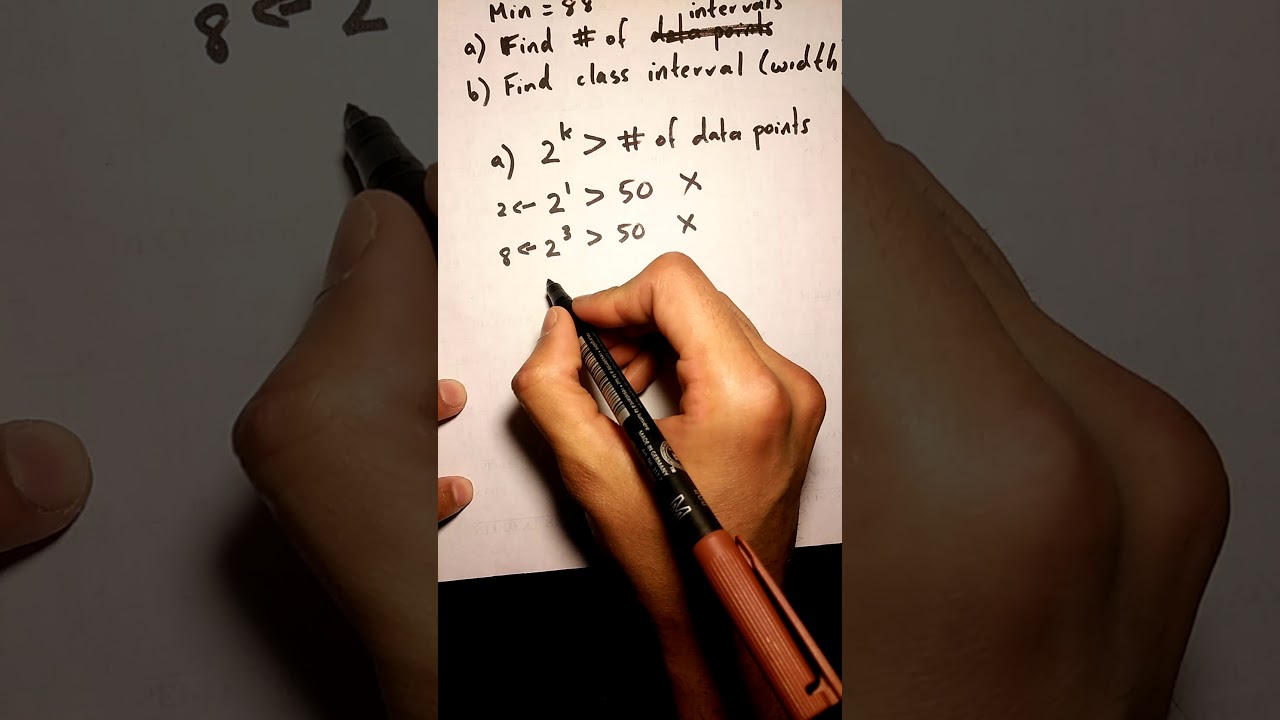 Min = 88
intervals
a) Find # of data points
b) Find class interval (width
a) 2^k > # of data points
2 ← 2^1 > 50 X
8 ← 2^3 > 50 X
8 ← 2
MADE IN GERMANY
M